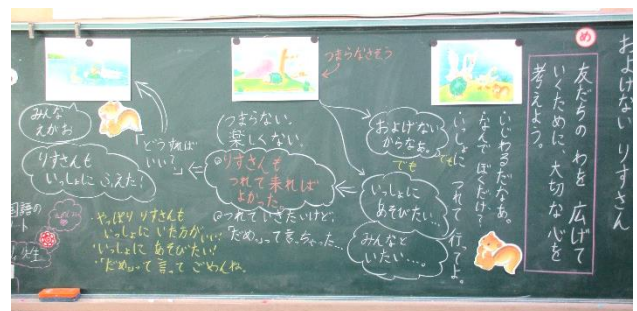 およげない りすさん
め
友だちの わを 広げて
いくために、大切な心を
考えよう。
いじわるだなあ。
なんで ぼくだけ?
いっしょに つれて 行ってよ。
およげない
からなあ。
でも
でも
いっしょに
あそびたい…
みんなと
いたい…。
つまらなさそう
つまらない。
楽しくない。
りすさんも
つれて来れば
よかった。
つれていきたいけど、
「だめ。」って言っちゃった…
どうすれば
いい?
みんな
えがお
りすさんも
いっしょに ふえた!
・やっぱり りすさんも
いっしょに いた方がいい!
・いっしょに あそびたい!
・「だめ。」って 言って ごめんね。
国語の